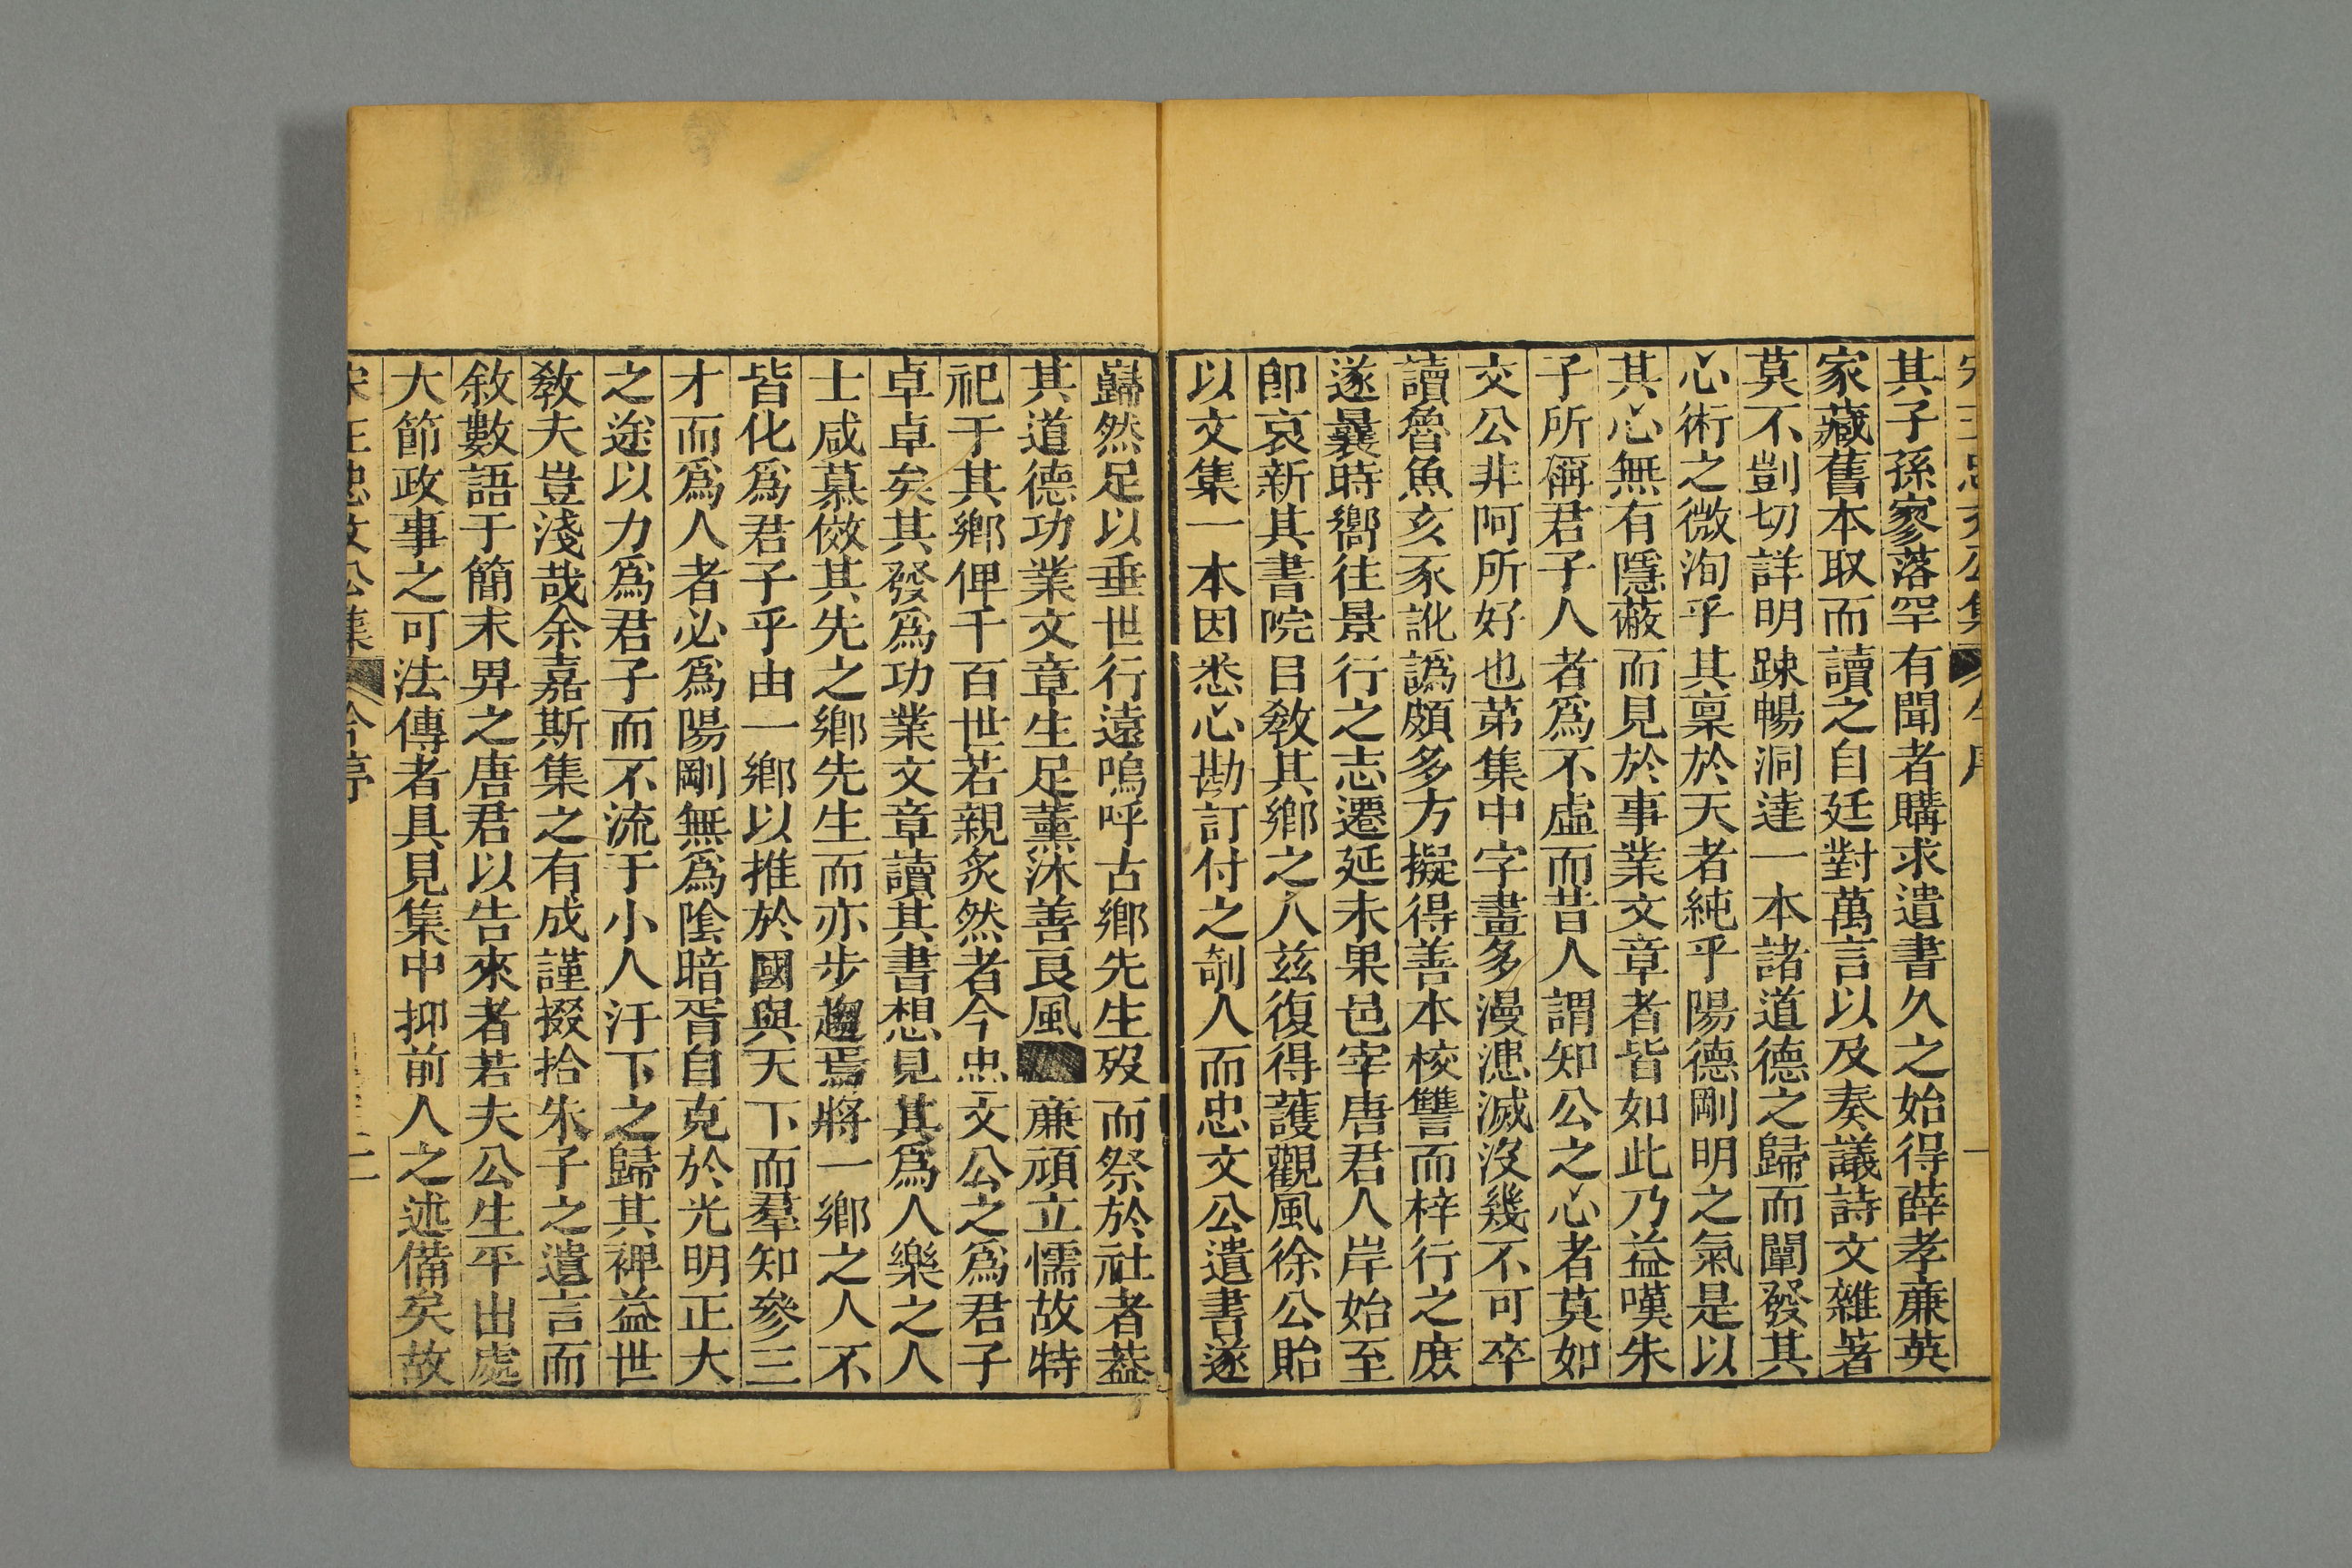 其子孫寥落罕有聞者購求遺書久之始得薛孝廉英
家藏舊本取而讀之自廷對萬言以及奏議詩文雜著
莫不剴切詳明踈暢洞達一本諸道德之歸而闡發其
心術之微洵乎其稟於天者純乎陽德剛明之氣是以
其心無有隱蔽而見於事業文章者皆如此乃益嘆朱
子所稱君子人者爲不虛而昔人謂知公之心者莫如
文公非阿所好也苐集中字畫多漫漶滅沒幾不可卒
讀魯魚亥豕訛譌頗多方擬得善本校讐而梓行之庶
遂曩時嚮往景行之志遷延未果邑宰唐君人岸始至
卽哀新其書院目敎其鄉之人兹復得護觀風徐公貽
以文集一本因悉心勘訂付之剞人而忠文公遺書遂
巋然足以垂世行遠嗚呼古鄉先生歿而祭於社者葢
其道德功業文章生足薰沐善良風廉頑立懦故特
祀于其鄉俾千百世若親炙然者今忠文公之爲君子
卓卓矣其發爲功業文章讀其書想見其爲人樂之人
士咸慕倣其先之鄉先生而亦步趨焉將一鄉之人不
皆化爲君子乎由一鄉以推於國與天下而羣知參三
才而爲人者必爲陽剛無爲陰暗胥自克於光明正大
之途以力爲君子而不流于小人汙下之歸其裨益世
敎夫豈淺哉余嘉斯集之有成謹掇拾朱子之遺言而
敘數語于簡末畀之唐君以告來者若夫公生平出處
大節政事之可法傳者具見集中抑前人之述備矣故
二